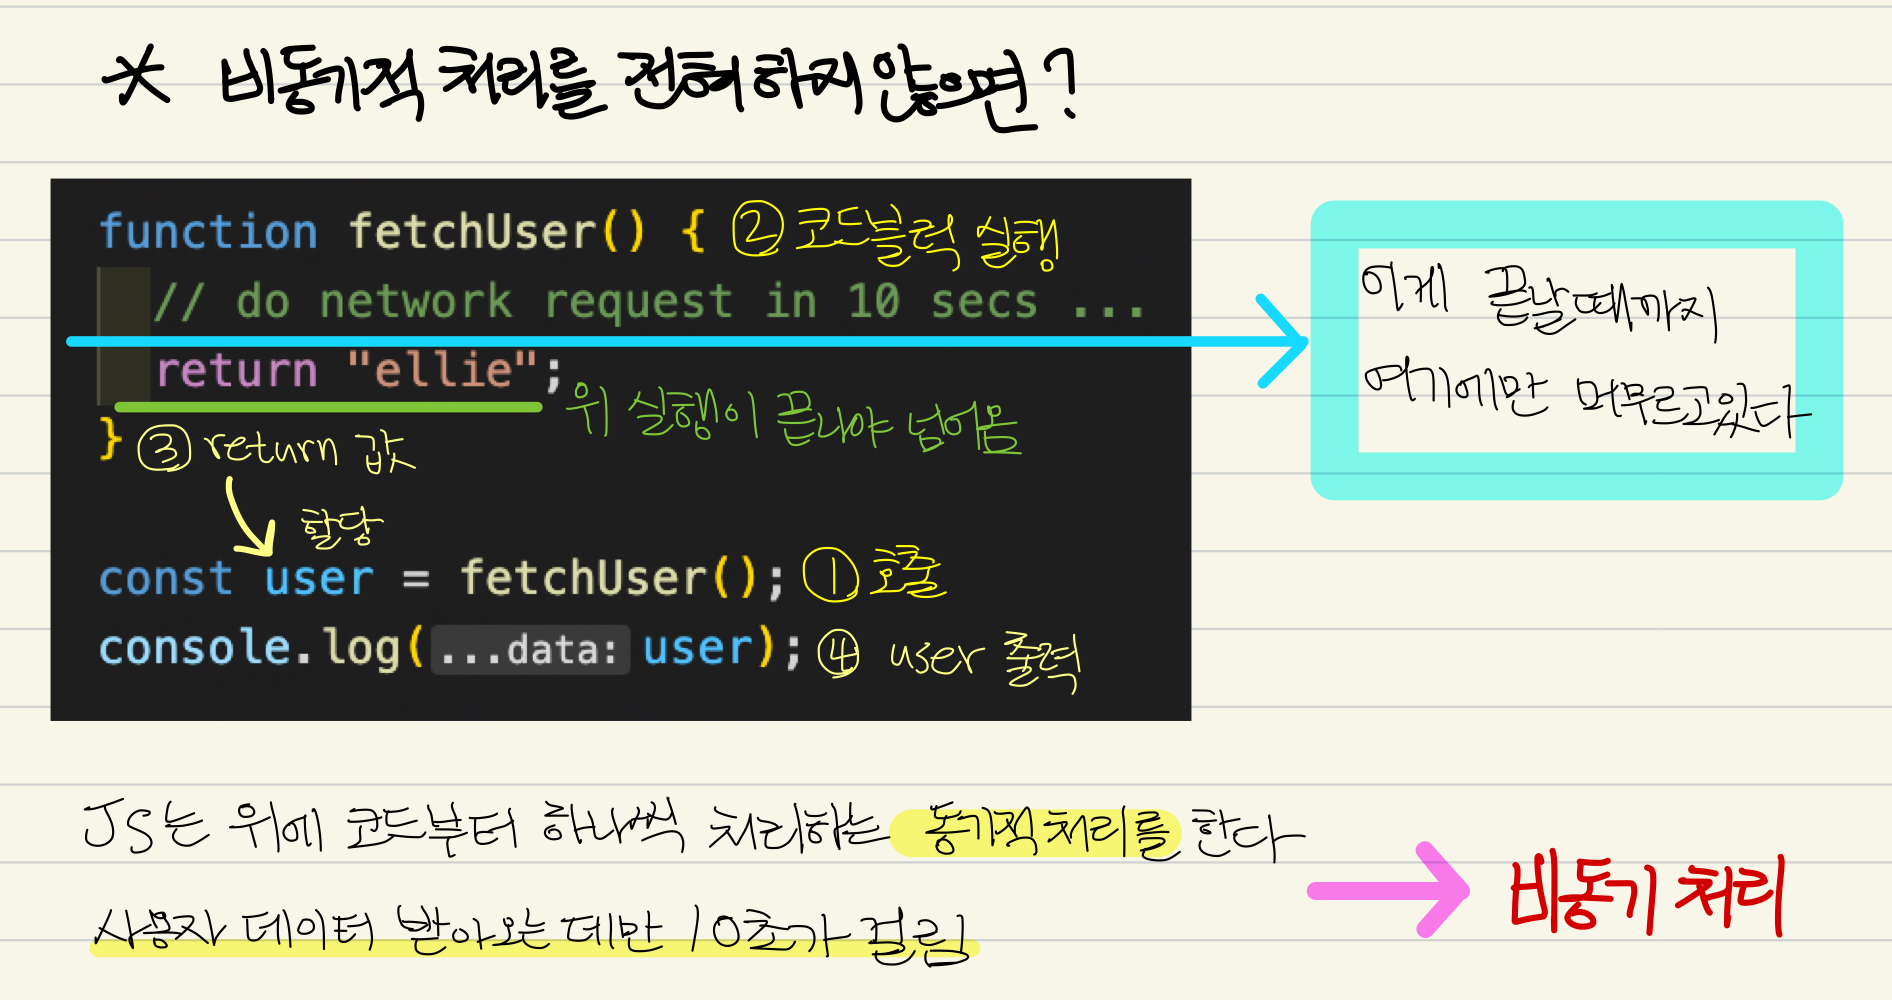 * 비동기적 처리를 전혀 하지 않으면?
function fetchUser() { ② 코드블럭 실행
// do network request in 10 secs ...
return "ellie";
위 실행이 끝나야 넘어옴
} ③ return 값
할당
const user = fetchUser(); ① 호출
console.log(...data: user); ④ user 출력
이게 끝날때까지
여기에만 머무르고있다
JS는 위에 코드부터 하나씩 처리하는 동기적처리를 한다
사용자 데이터 받아오는데만 10초가 걸림
비동기 처리